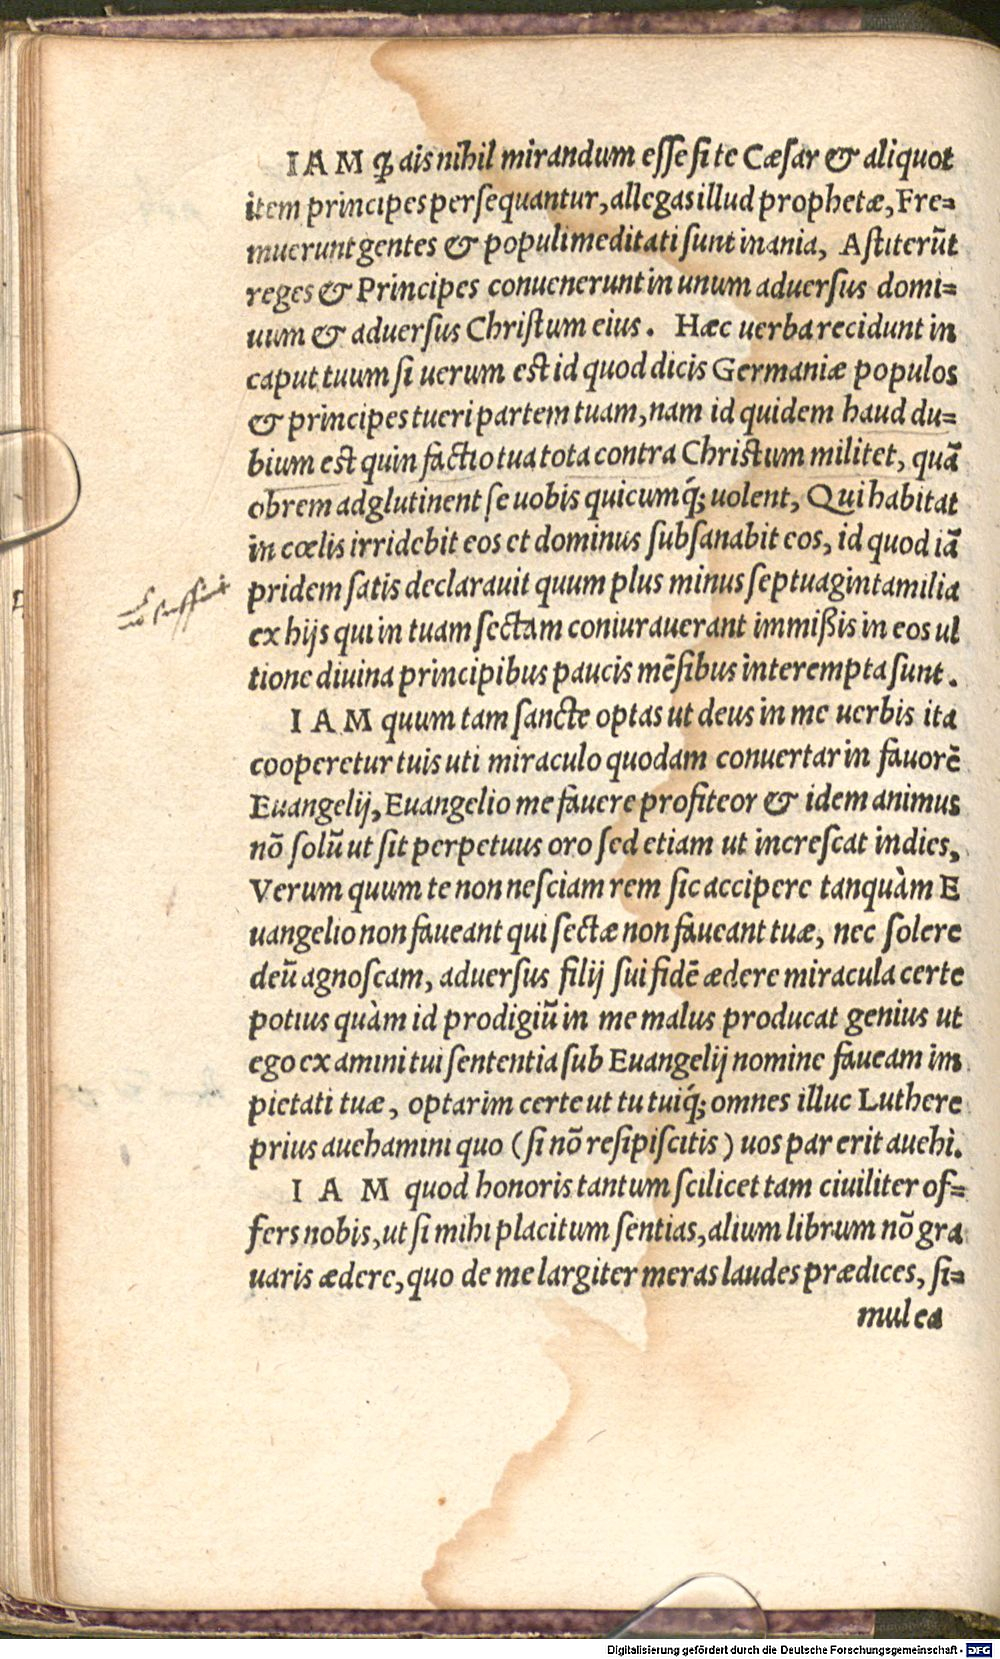 IAM ꝙ ais nihil mirandum esse si te Cæsar & aliquot
item principes persequantur, allegas illud prophetæ, Fre=
muerunt gentes & populi meditati sunt inania, Astiterũt
reges & Principes conuenerunt in unum aduersus domi=
uum & aduersus Christum eius. Hæc uerba recidunt in
caput tuum si uerum est id quod dicis Germaniæ populos
& principes tueri partem tuam, nam id quidem haud du=
bium est quin factio tua tota contra Christum militet, quã
obrem adglutinent se uobis quicumq́; uolent, Qui habitat
in cœlis irridebit eos et dominus subsanabit eos, id quod iã
pridem satis declarauit quum plus minus septuaginta milia
ex hijs qui in tuam sectam coniurauerant immißis in eos ul
tione diuina principibus paucis mẽsibus interempta sunt.
IAM quum tam sancte optas ut deus in me uerbis ita
cooperetur tuis uti miraculo quodam conuertar in fauorẽ
Euangelij, Euangelio me fauere profiteor & idem animus
nõ solũ ut sit perpetuus oro sed etiam ut increscat indies,
Verum quum te non nesciam rem sic accipere tanquàm E
uangelio non faueant qui sectæ non faueant tuæ, nec solere
deũ agnoscam, aduersus filij sui fidẽ ædere miracula certe
potius quàm id prodigiũ in me malus producat genius ut
ego ex amini tui sententia sub Euangelij nomine faueam im
pietati tuæ, optarim certe ut tu tuiq́; omnes illuc Luthere
prius auehamini quo (si nõ resipiscitis) uos par erit auehi.
I A M quod honoris tantum scilicet tam ciuiliter of=
fers nobis, ut si mihi placitum sentias, alium librum nõ gra
uaris ædere, quo de me largiter meras laudes prædices, si=
mul ea
Digitalisierung gefördert durch die Deutsche Forschungsgemeinschaft - DFG